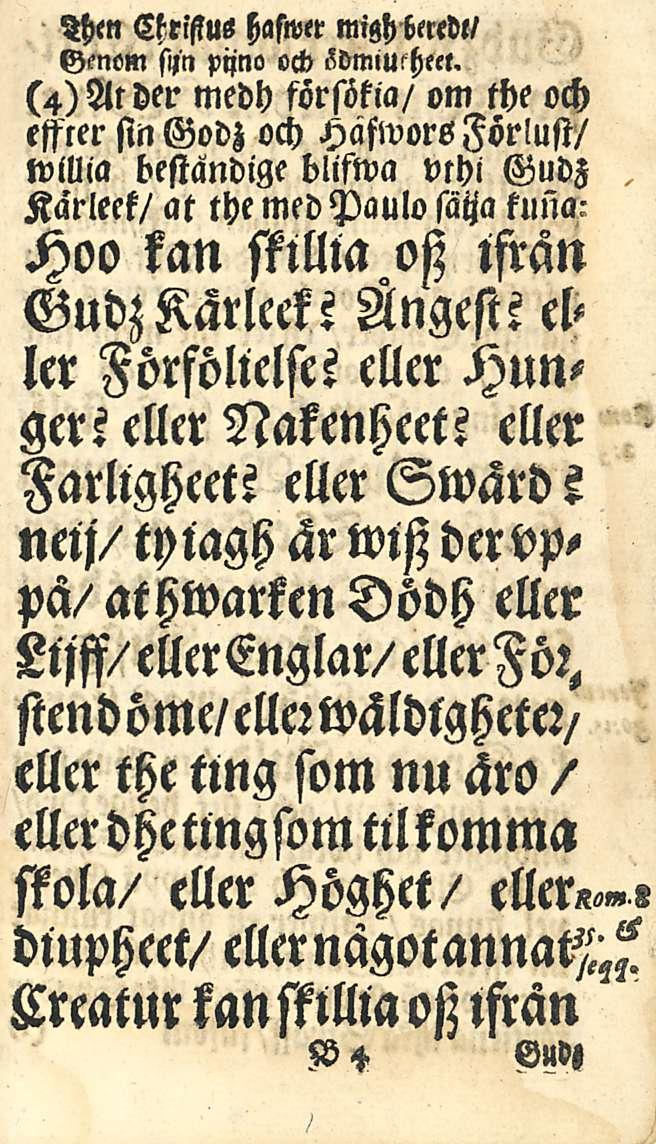 Then Christus hafwer migh beredt/
Genom sijn pijno och ödmiucheet.
(4) At der medh försökia/ om the och
effter sin Godz och Håfwors Förlust/
willia beständige blifwa vthi Gudz
Kärleek/ at the med Paulo säija kuña:
Hoo kan skillia oß ifrån
Gudz Kärleek? Ångest? el-
ler Förfölielse? eller Hun-
ger? eller Nakenheet? eller
Farligheet? eller Swärd?
neij/ ty iagh är wiß der vp-
på/ at hwarken Dödh eller
Lijff/ eller Englar/ eller För,
stendöme/ eller wäldigheter/
eller the ting som nu äro /
eller dhe ting som til komma
skola/ eller Höghet/ eller Rom. 8
diupheet/ eller något annat 35. &
seqq.
Creatur kan skillia oß ifrån
B 4 Gudz